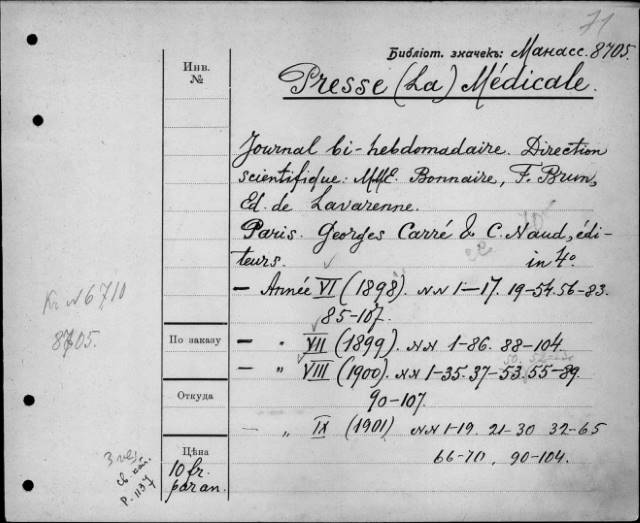 71
Библіот. значекъ: Манасс. 8705.
Инв. №
Presse (La) Médicale.
Journal bi-hebdomadaire. Direction
scientifique: MM. E. Bonnaire, F. Brun,
Ed. de Lavarenne.
Paris. Georges Carré & C. Naud, édi-
teurs. in 4°.
— Année VI (1898). NN 1–17. 19–54. 56–83.
85–107.
— " VII (1899). NN 1–86. 88–104.
— " VIII (1900). NN 1–35. 37–53. 55–89.
90–107.
— " IX (1901) NN 1–19. 21–30 32–65
66–70, 90–104.
N 6710
8705.
По заказу
Откуда
Цѣна
10 fr.
par an.